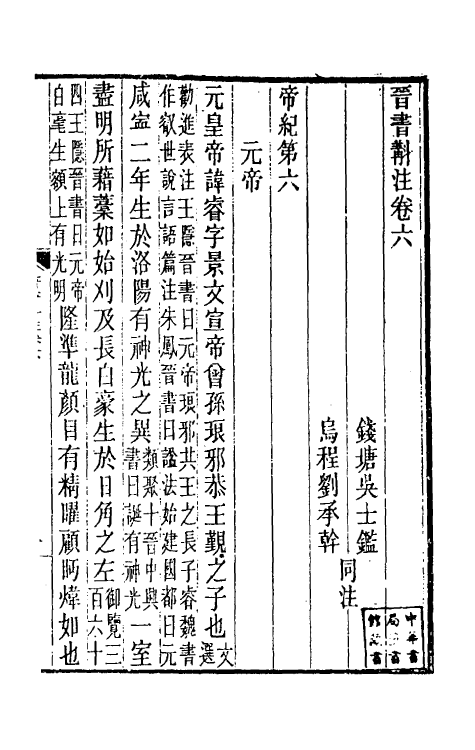 晉書斠注卷六
錢塘吳士鑑
烏程劉承幹
同注
帝紀第六
元帝
元皇帝諱睿字景文宣帝曾孫琅邪恭王覲之子也文選
勸進表注王隱晉書曰元帝琅邪共王之長子睿魏書
作叡世說言語篇注朱鳳晉書曰諡法始建國都曰元
咸寧二年生於洛陽有神光之異類聚十晉中興
書曰誕有神光一室
盡明所藉藁如始刈及長白豪生於日角之左御覽三
百六十
四王隱晉書曰元帝
白毫生額上有光明隆準龍顏目有精曜顧眄煒如也
中華書
局
館藏書